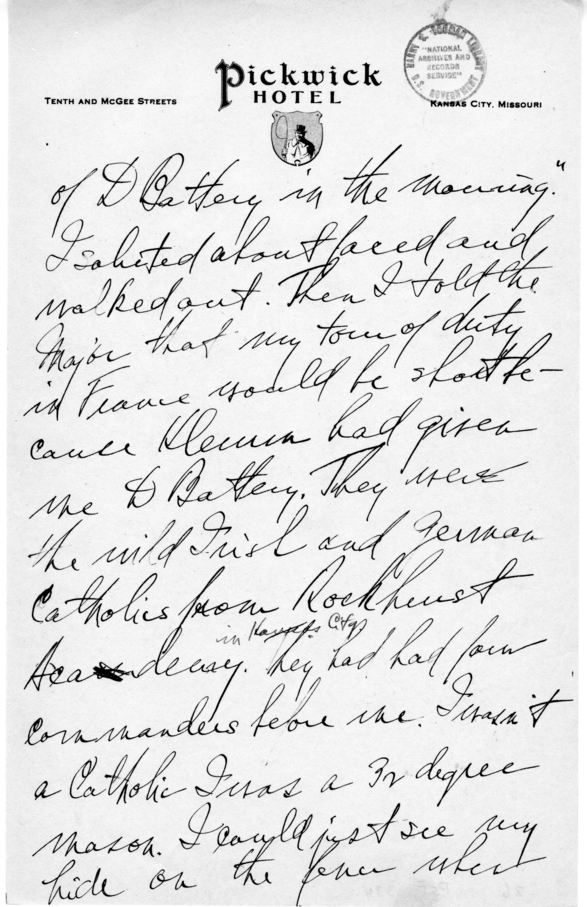 Pickwick
HOTEL
TENTH AND MCGEE STREETS
KANSAS CITY, MISSOURI
HARRY S. TRUMAN LIBRARY
"NATIONAL
ARCHIVES AND
RECORDS
SERVICE"
U.S. GOVERNMENT
of D Battery in the morning."
I saluted about faced and
walked out. Then I told the
Major that my tour of duty
in France would be short be-
cause Klemm had given
me D Battery. They were
the wild Irish and German
Catholics from Rockhurst
in Kansas City
Academy. They had had four
commanders before me. I wasn't
a Catholic I was a 32 degree
mason. I could just see my
hide on the fence when